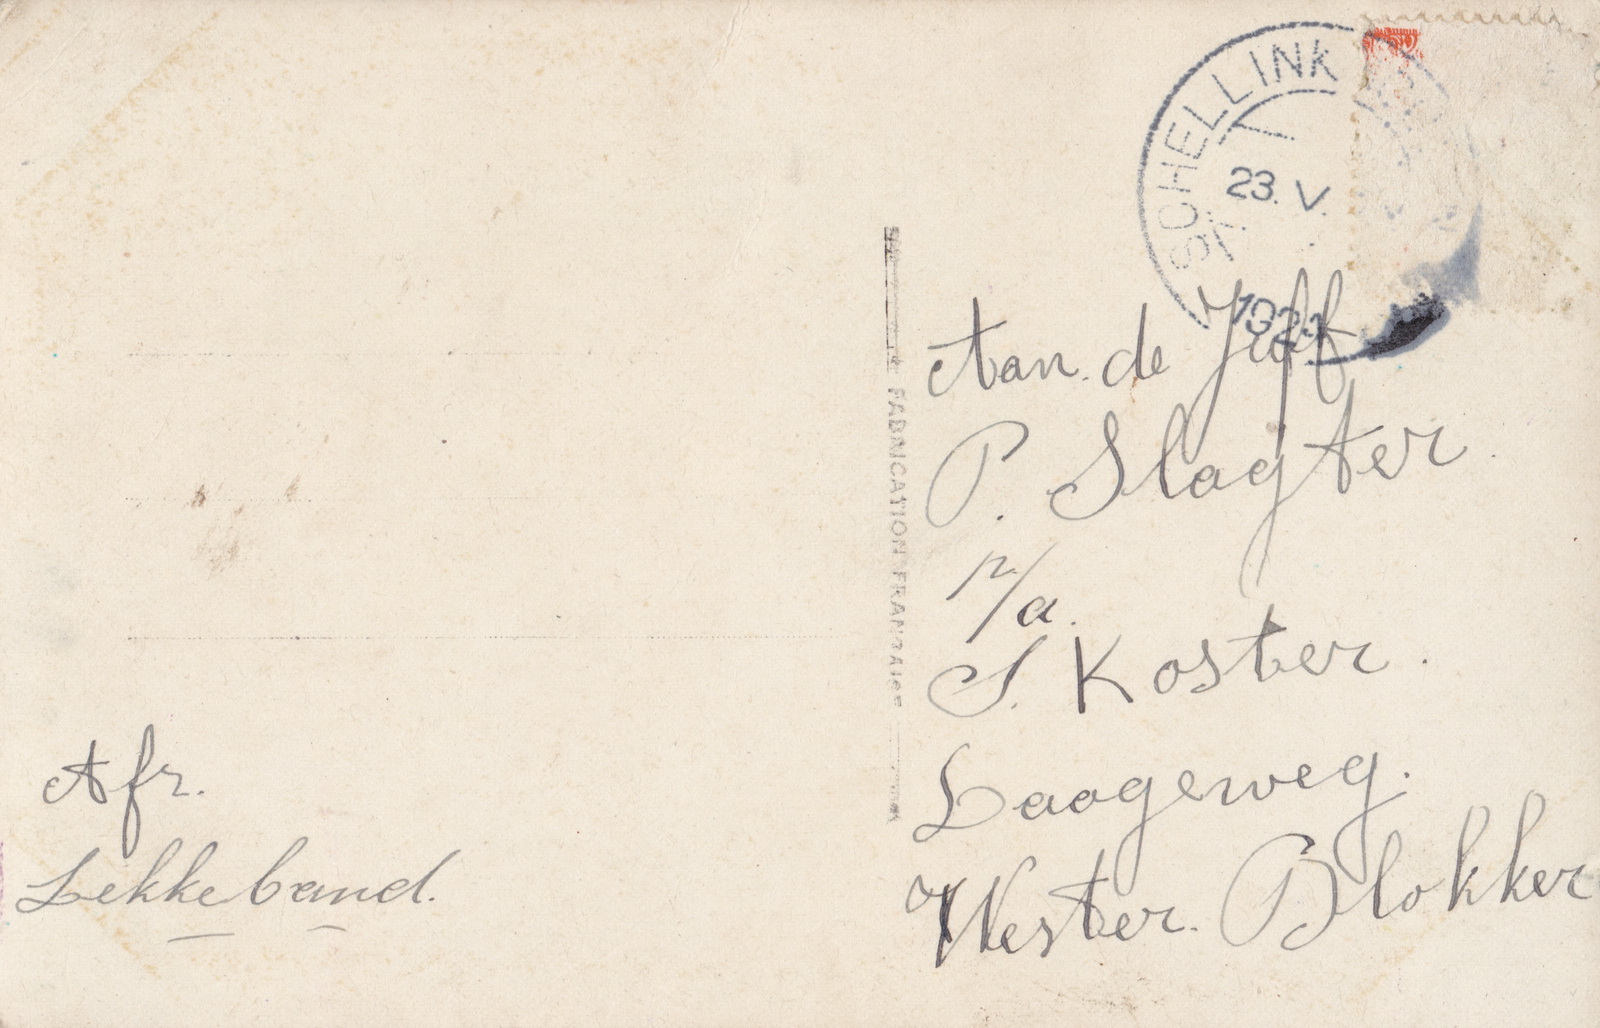 SCHELLINK
23. V.
192
Aan. de Juff
P. Slagter.
p/a.
S. Koster.
Laageweg.
Wester. Blokker
FABRICATION FRANÇAISE
Afr.
Lekkeband.